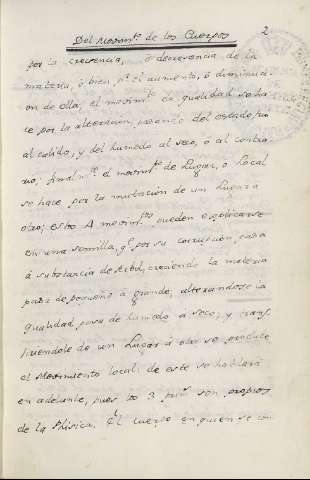 Del Movim.to de los Cuerpos 2
por la crecencia, ò decrecencia de la
materia, ò bien p.r el aumento, ò diminuci-
on de ella; el movim.to de qualidad se ha-
ce por la alteracion, pasando del estado frio
al calido, y del humedo al seco, ò al contra-
rio; final m.te el movim.to de Lugar, ò Local
se hace por la mutacion de un Lugar a
otro; estos 4 movim.tos pueden explicarse
en una semilla, q.e por su corrupcion, pasa
à substancia de Arbol, creciendo la materia
pasa de pequeño à grande, alterandose la
qualidad pasa de humido à seco, y trans
firiendole de un Lugar à otro se produce
el Movimiento local: de este se hablará
en adelante, pues los 3 prim.s son propios
de la Phisica. El cuerpo en quien se con